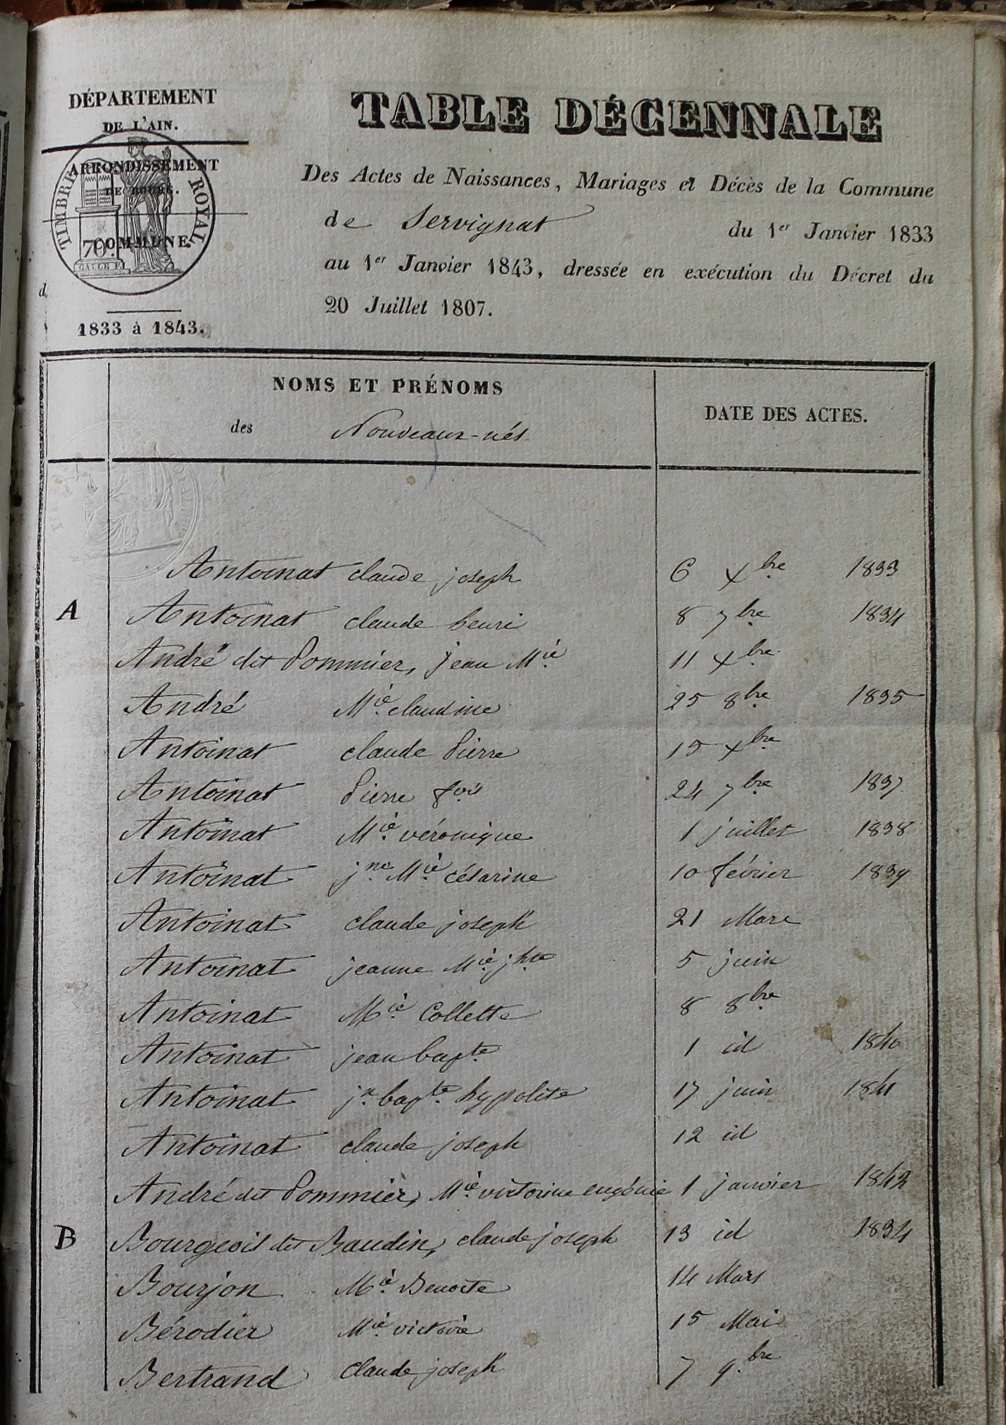 DÉPARTEMENT
DE L'AIN.
ARRONDISSEMENT
DE BOURG.
TIMBRE ROYAL
70
COMMUNE
d
1833 à 1843.
TABLE DÉCENNALE
Des Actes de Naissances, Mariages et Décès de la Commune
de Servignat du 1er Janvier 1833
au 1er Janvier 1843, dressée en exécution du Décret du
20 Juillet 1807.
NOMS ET PRÉNOMS
des Nouveaux-nés
DATE DES ACTES.
Antoinat claude joseph 6 xbre 1833
A Antoinat claude henri 8 7bre 1834
André dit Pommier, jean Mie 11 xbre
André Mie claudine 25 8bre 1835
Antoinat claude Pierre 15 xbre
Antoinat Pierre fois 24 7bre 1837
Antoinat Mie véronique 1 juillet 1838
Antoinat jne Mie césarine 10 février 1839
Antoinat claude joseph 21 Mars
Antoinat jeanne Mie jhte 5 juin
Antoinat Mie Collette 8 8bre
Antoinat jean bapte 1 id 1840
Antoinat jn bapte hypolite 17 juin 1841
Antoinat claude joseph 12 id
André dit Pommier, Mie victorine eugénie 1 janvier 1842
B Bourgeois dit Baudin, claude joseph 13 id 1834
Bourjon Mie Benoite 14 Mars
Bérodier Mie victoire 15 Mai
Bertrand Claude joseph 7 9.bre